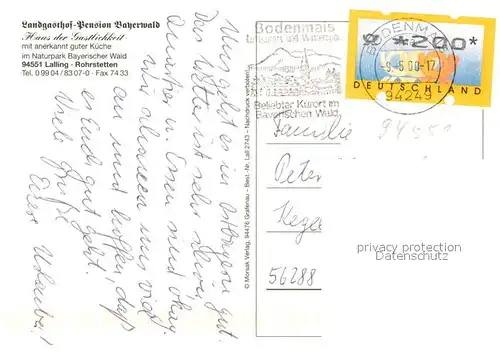 Landgasthof-Pension Bayerwald
Haus der Gastlichkeit
mit anerkannt guter Küche
im Naturpark Bayerischer Wald
94551 Lalling - Rohrstetten
Tel. 0 99 04 / 83 07-0 · Fax 74 33
Uns geht es in Ostbayern gut.
Das Wetter ist sehr schön,
Quartier u. Essen sind okay.
Wir schauen uns viel
an und hoffen, daß
es Euch gut geht.
Viele Grüße
Eure Urlauber!
© Morsak Verlag, 94476 Grafenau - Best.-Nr. Lall 2743 - Nachdruck verboten!
Bodenmais
Luftkurort und Wintersport
Beliebter Kurort im
Bayerischen Wald
BODENMAIS
-9.-5.00-17
94249
*200*
DEUTSCHLAND
94551
Familie
Peter
56288
privacy protection
Datenschutz